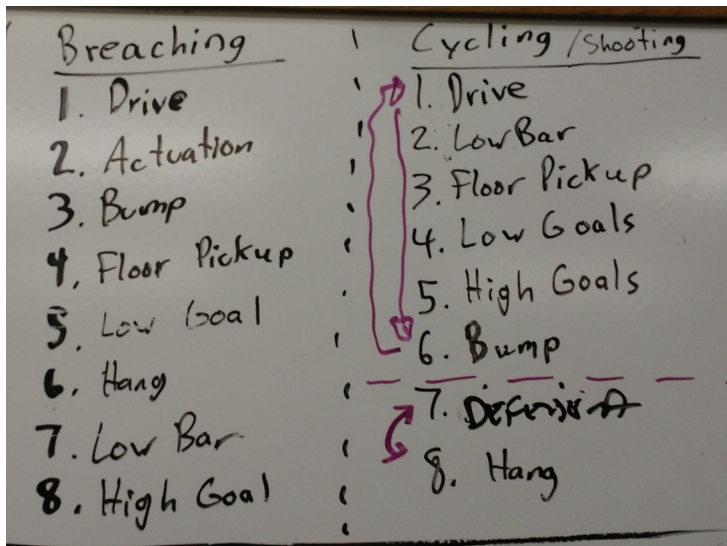 Breaching
1. Drive
2. Actuation
3. Bump
4. Floor Pickup
5. Low Goal
6. Hang
7. Low Bar
8. High Goal
Cycling /Shooting
1. Drive
2. Low Bar
3. Floor Pickup
4. Low Goals
5. High Goals
6. Bump
7.
8. Hang